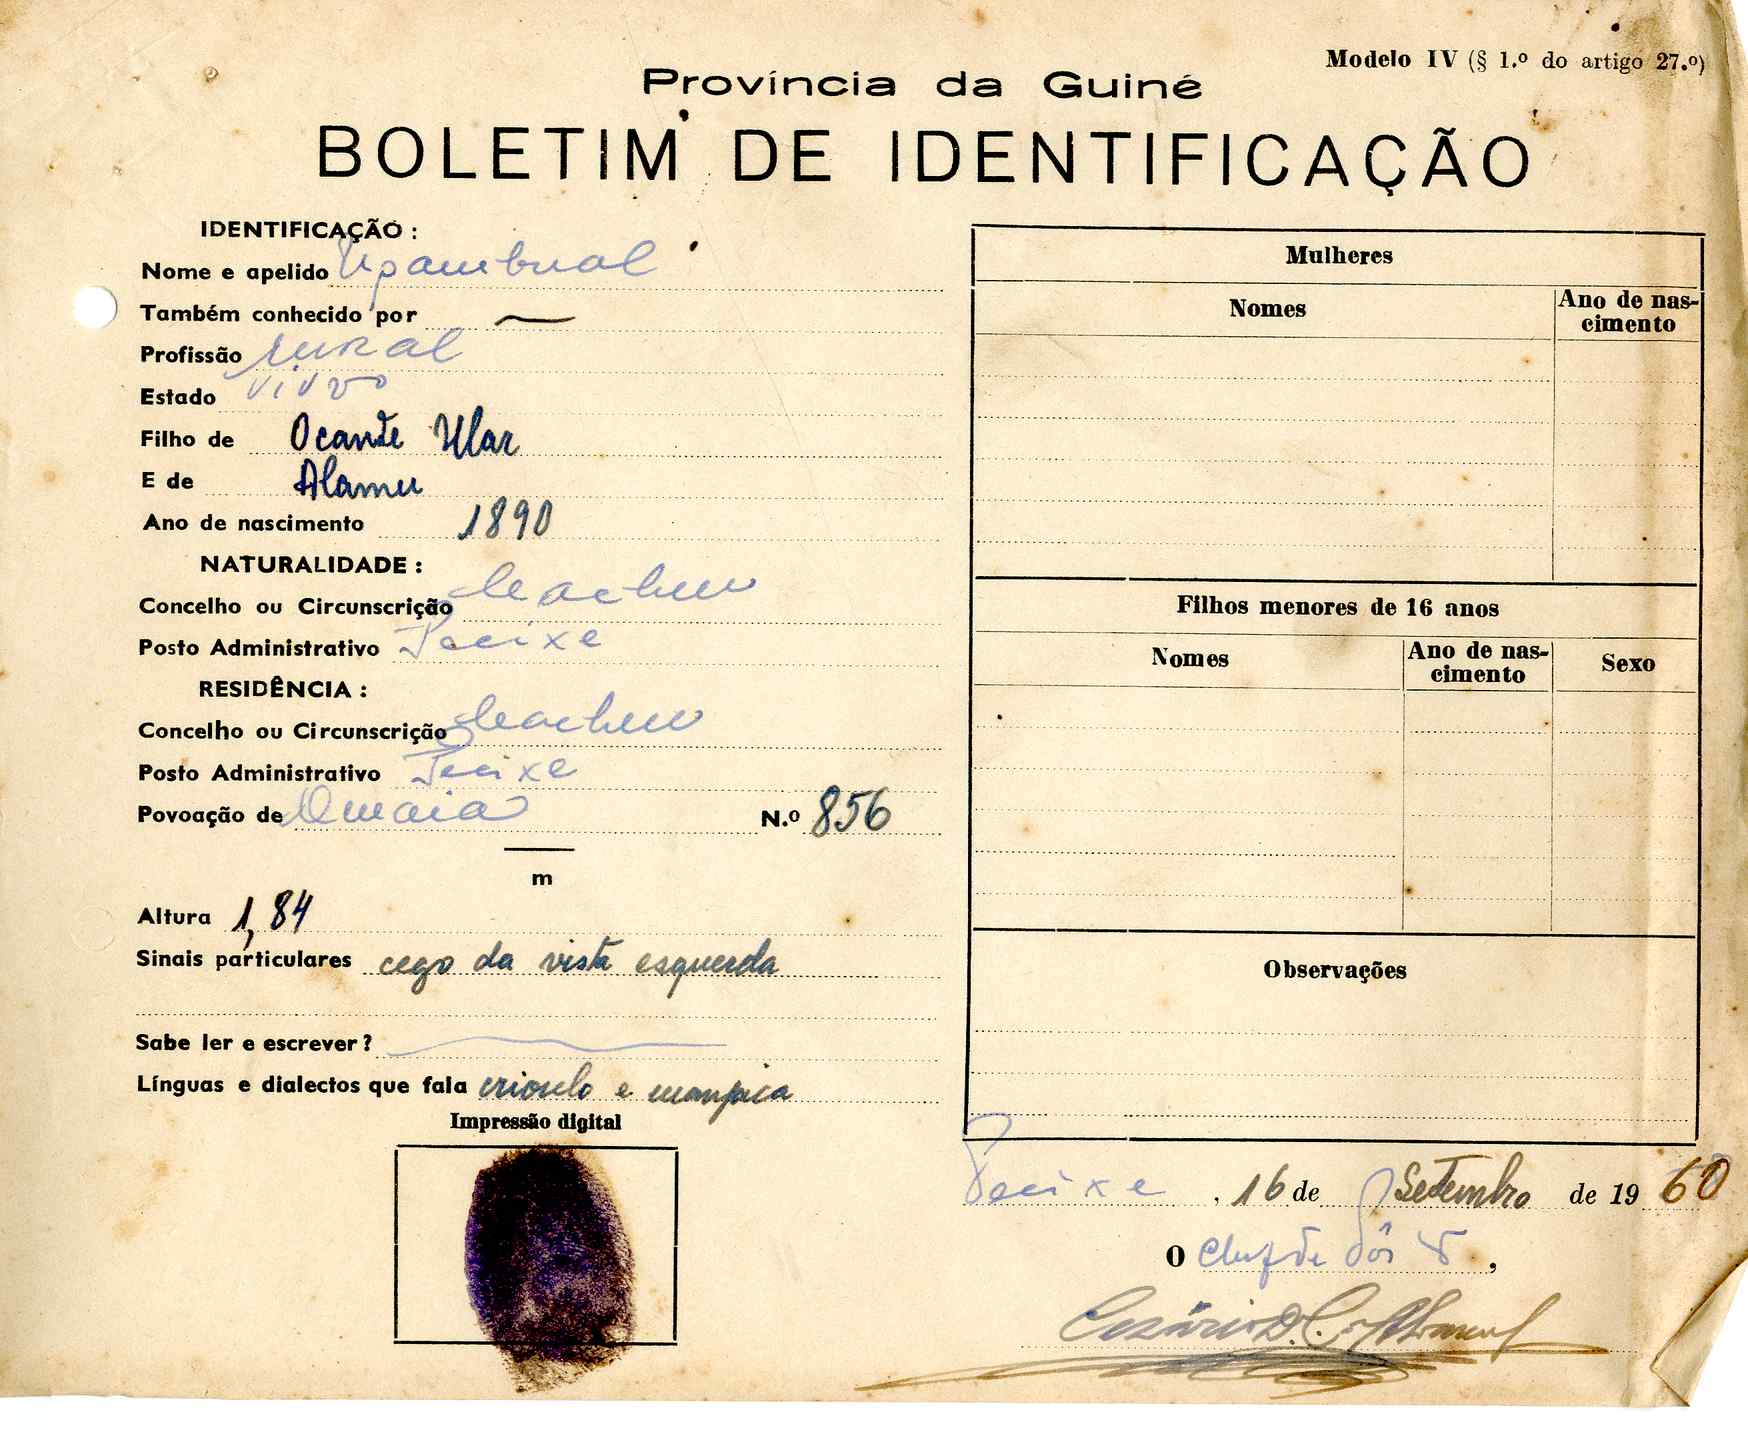 Modelo IV (§ 1.º do artigo 27.º)
Província da Guiné
BOLETIM DE IDENTIFICAÇÃO
IDENTIFICAÇÃO :
Nome e apelido
Também conhecido por —
Profissão rural
Estado viuvo
Filho de Ocante Ular
E de Alamu
Ano de nascimento 1890
NATURALIDADE :
Concelho ou Circunscrição Cacheu
Posto Administrativo Pecixe
RESIDÊNCIA :
Concelho ou Circunscrição Cacheu
Posto Administrativo Pecixe
Povoação de N.º 856
m
Altura 1,84
Sinais particulares cego da vista esquerda
Sabe ler e escrever?
Línguas e dialectos que fala crioulo e manjaca
Impressão digital
Mulheres
Nomes
Ano de nas-
cimento
Filhos menores de 16 anos
Nomes
Ano de nas-
cimento
Sexo
Observações
Pecixe, 16 de Setembro de 1960
O Chefe de Pôsto,